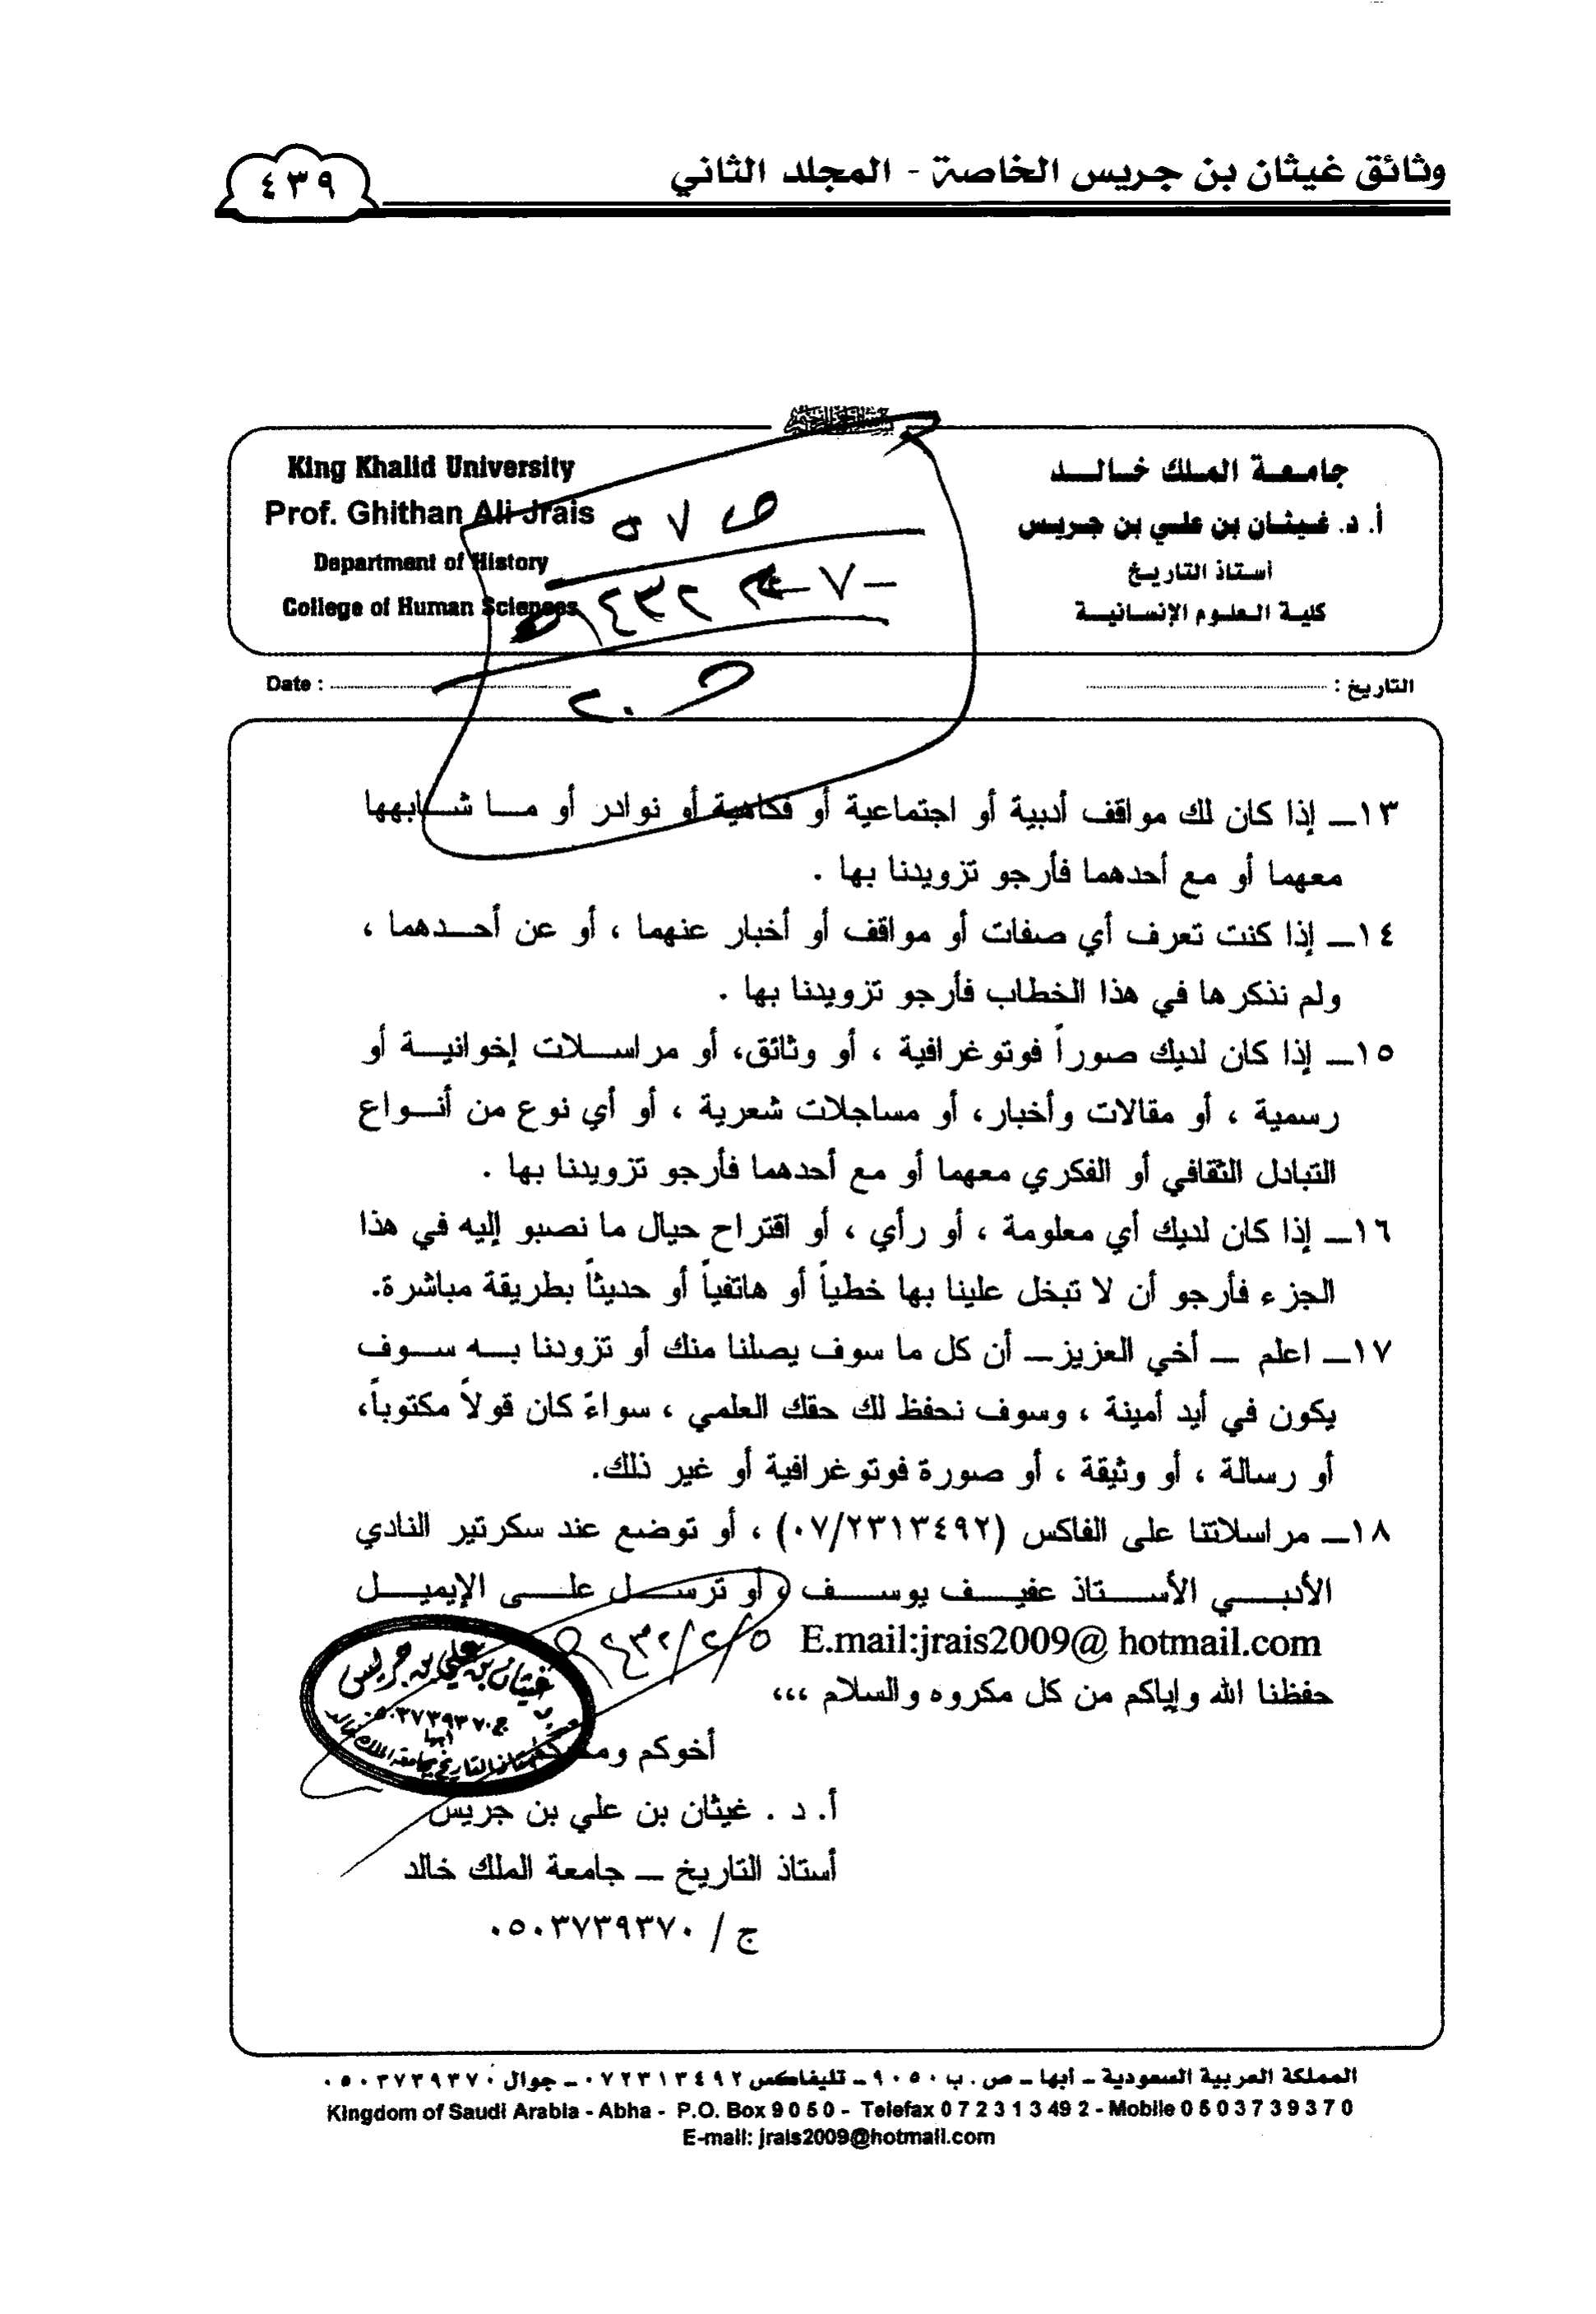 وثائق غيثان بن جريس الخاصة - المجلد الثاني
٤٣٩
جامعة الملك خالد
أ. د. غيثان بن علي بن جريس
أستاذ التاريخ
كلية العلوم الإنسانية
King Khalid University
Prof. Ghithan Ali Jrais
Department of History
College of Human Sciences
التاريخ :
Date :
١٣ــ إذا كان لك مواقف أدبية أو اجتماعية أو فكاهية أو نوادر أو مـا شـابهها
معهما أو مع أحدهما فأرجو تزويدنا بها .
١٤ــ إذا كنت تعرف أي صفات أو مواقف أو أخبار عنهما ، أو عن أحـدهما ،
ولم نذكرها في هذا الخطاب فأرجو تزويدنا بها .
١٥ــ إذا كان لديك صوراً فوتوغرافية ، أو وثائق، أو مراسـلات إخوانيـة أو
رسمية ، أو مقالات وأخبار، أو مساجلات شعرية ، أو أي نوع من أنـواع
التبادل الثقافي أو الفكري معهما أو مع أحدهما فأرجو تزويدنا بها .
١٦ــ إذا كان لديك أي معلومة ، أو رأي ، أو اقتراح حيال ما نصبو إليه في هذا
الجزء فأرجو أن لا تبخل علينا بها خطياً أو هاتفياً أو حديثاً بطريقة مباشرة.
١٧ــ اعلم ــ أخي العزيزــ أن كل ما سوف يصلنا منك أو تزودنا بـه سـوف
يكون في أيد أمينة ، وسوف نحفظ لك حقك العلمي ، سواءً كان قولاً مكتوباً،
أو رسالة ، أو وثيقة ، أو صورة فوتوغرافية أو غير ذلك.
١٨ــ مراسلاتنا على الفاكس (٠٧/٢٣١٣٤٩٢) ، أو توضع عند سكرتير النادي
الأدبـي الأسـتاذ عفيـف يوسـف ، أو ترسـل علـى الإيميـل
E.mail:jrais2009@ hotmail.com
١٤٣٢/٢/٥
حفظنا الله وإياكم من كل مكروه والسلام ،،،
غيثان بن علي بن جريس
أخوكم
أ. د . غيثان بن علي بن جريس
أستاذ التاريخ ــ جامعة الملك خالد
ج / ٠٥٠٣٧٣٩٣٧٠
المملكة العربية السعودية ــ أبها ــ ص . ب ٩٠٥٠ ــ تليفاكس ٠٧٢٣١٣٤٩٢ ــ جوال ٠٥٠٣٧٣٩٣٧٠
Kingdom of Saudi Arabia - Abha - P.O. Box 9 0 5 0 - Telefax 0 7 2 3 1 3 49 2 - Mobile 0 5 0 3 7 3 9 3 7 0
E-mail: jrais2009@hotmail.com